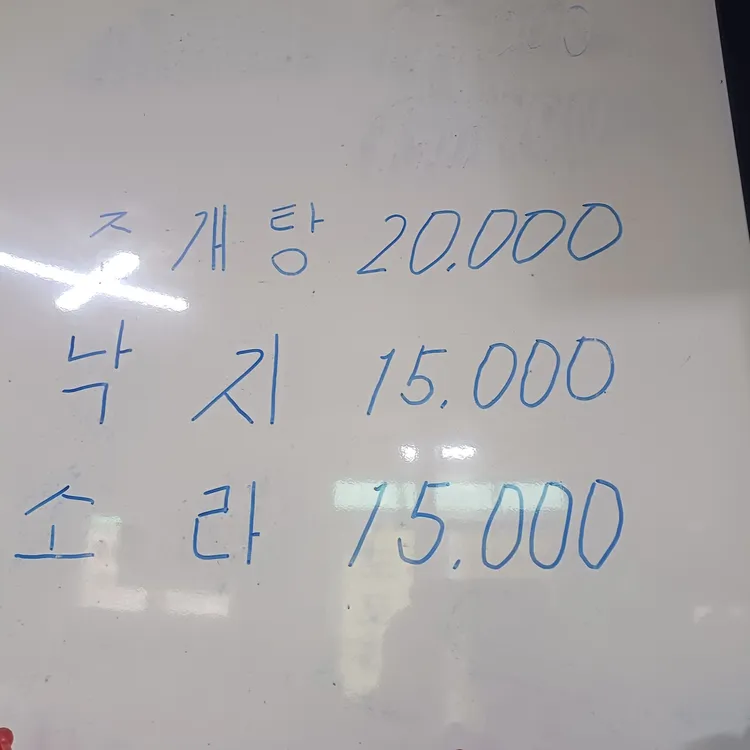 조개탕 20.000
낙지 15.000
소라 15.000